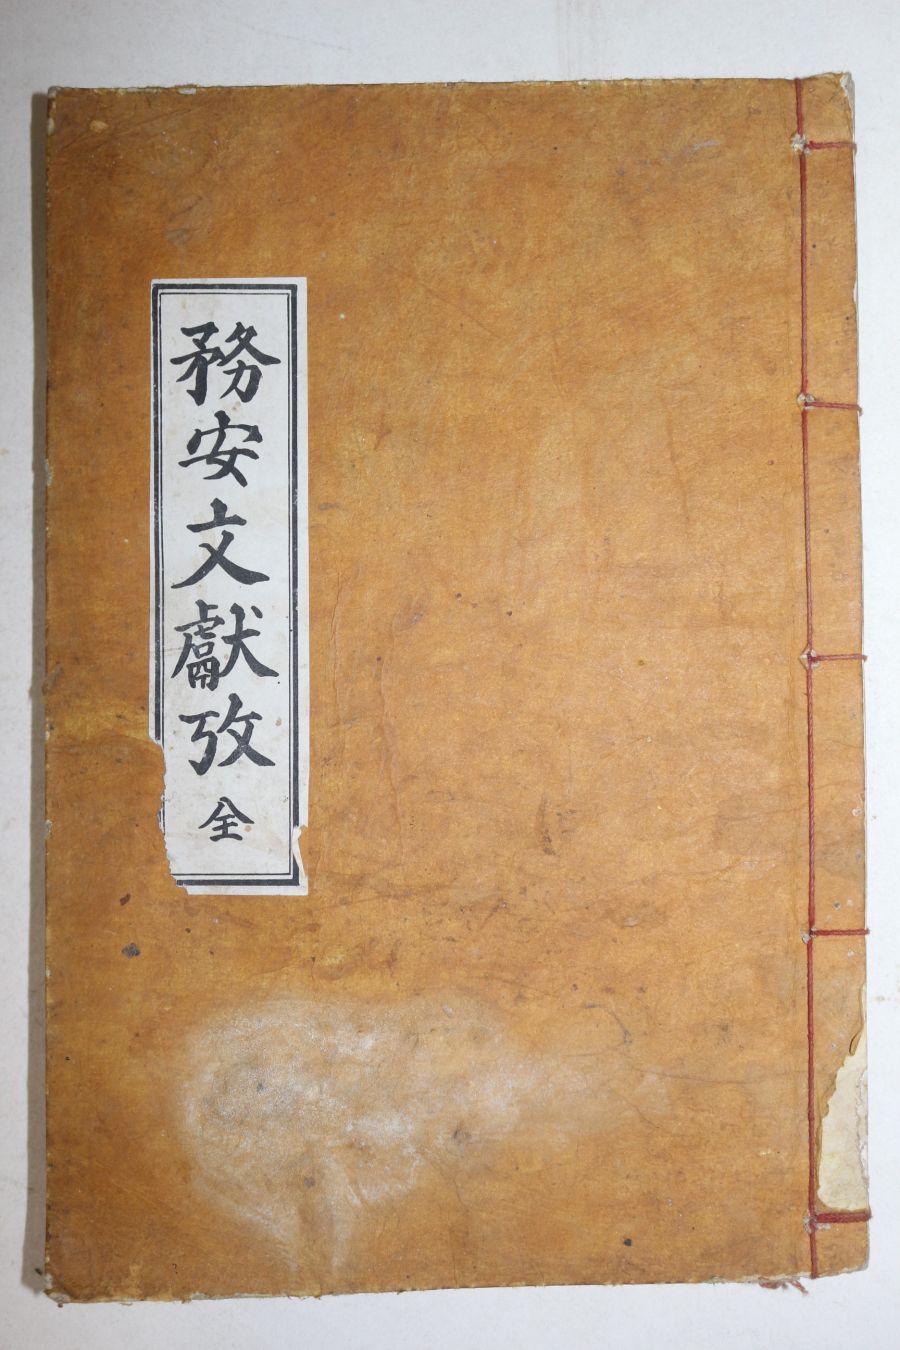 務安文獻攷 全